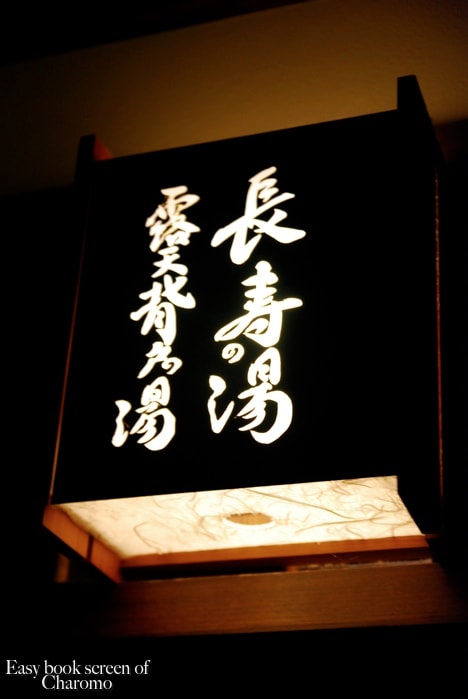 長寿の湯
露天背戸の湯
Easy book screen of
Charomo